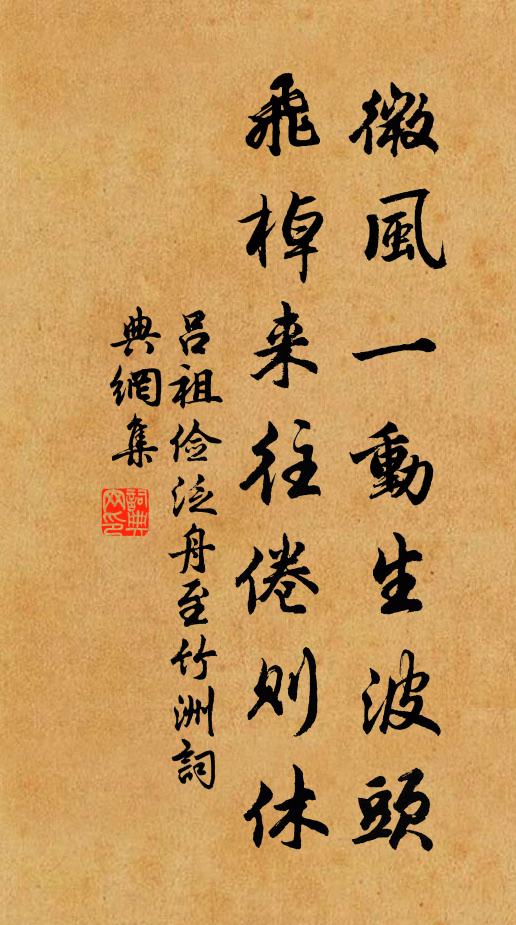 微風一動生波頭
飛棹来往倦則休
吕祖儉泛舟至竹洲詞
典網集
詞典网印